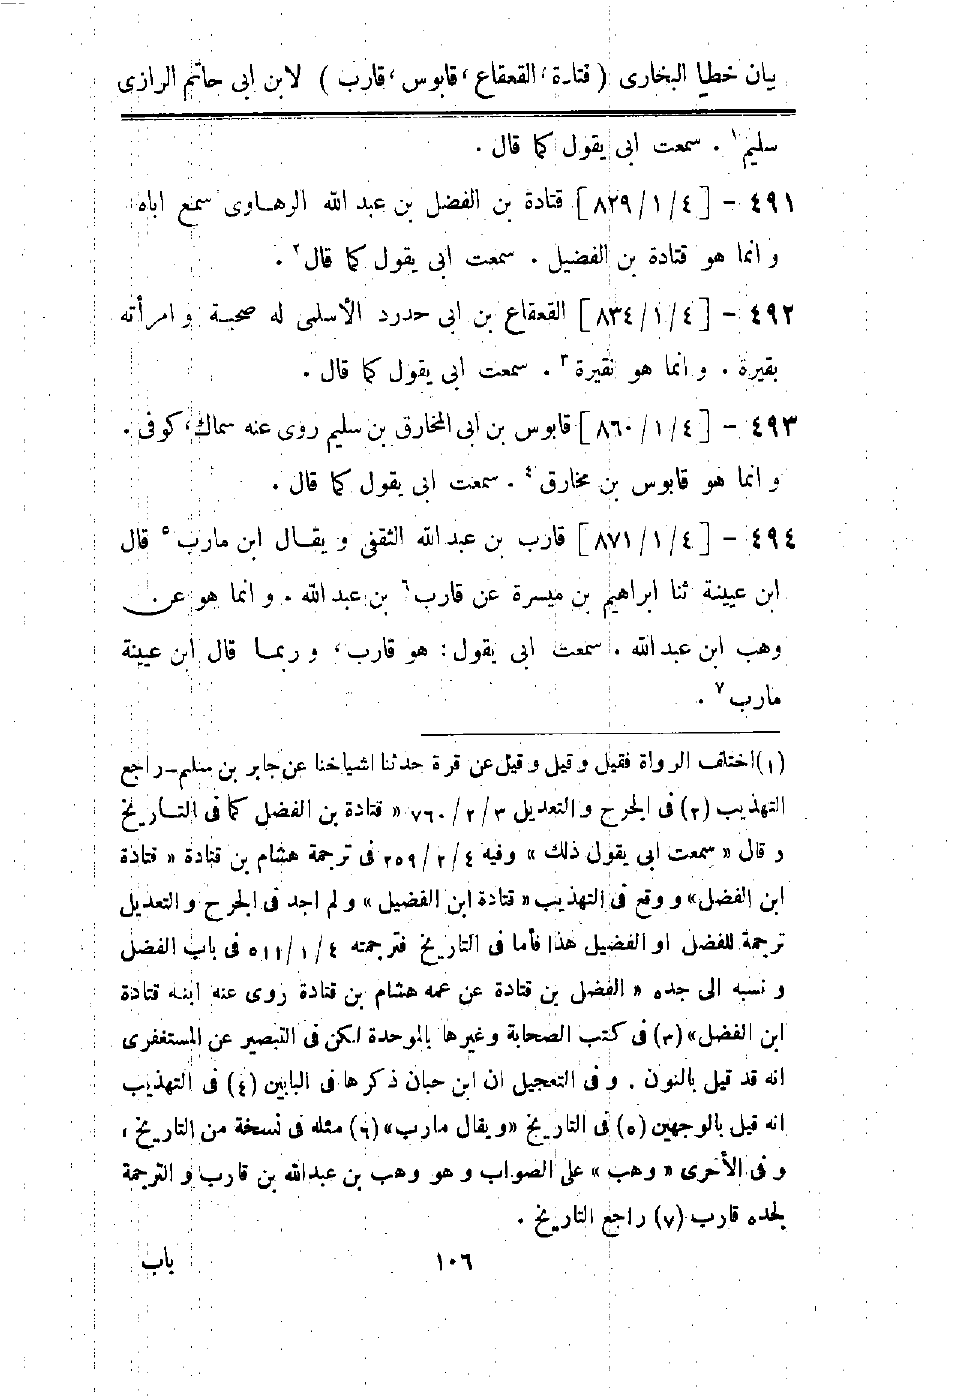 بيان خطإ البخارى ( قتادة ، القعقاع ، قابوس ، قارب ) لابن ابى حاتم الرازى
سليم١ . سمعت ابى يقول كما قال .
٤٩١ – [٨٢٩/١/٤] قتادة بن الفضل بن عبد الله الرهاوى سمع اباه
و انما هو قتادة بن الفضيل . سمعت ابى يقول كما قال٢ .
٤٩٢ – [٨٣٤/١/٤] القعقاع بن ابى حدرد الأسلمى له صحبة و امرأته
بقيرة . و انما هو نقيرة٣ . سمعت ابى يقول كما قال .
٤٩٣ – [٨٦٠/١/٤] قابوس بن ابى المخارق بن سليم روى عنه سماك، كوفى .
و انما هو قابوس بن مخارق٤ . سمعت ابى يقول كما قال .
٤٩٤ – [٨٧١/١/٤] قارب بن عبد الله الثقفى و يقال ابن مارب٥ قال
ابن عيينة ثنا ابراهيم بن ميسرة عن قارب٦ بن عبد الله . و انما هو عن
وهب ابن عبد الله . سمعت ابى يقول : هو قارب ، و ربما قال ابن عيينة
مارب٧ .
(١) اختلف الرواة فقيل و قيل و قيل عن قرة حدثنا اشياخنا عن جابر بن سليم – راجع
التهذيب (٢) فى الجرح و التعديل ٧٦٠/٢/٣ « قتادة بن الفضل كما فى التاريخ
و قال « سمعت ابى يقول ذلك » وفيه ٢٥٩/٢/٤ فى ترجمة هشام بن قتادة « قتادة
ابن الفضل» و وقع فى التهذيب « قتادة ابن الفضيل » و لم اجد فى الجرح و التعديل
ترجمة للفضل او الفضيل هذا فأما فى التاريخ فترجمته ٥١١/١/٤ فى باب الفضل
و نسبه الى جده « الفضل بن قتادة عن عمه هشام بن قتادة روى عنه ابنه قتادة
ابن الفضل» (٣) فى كتب الصحابة وغيرها بالموحدة لكن فى التبصير عن المستغفرى
انه قد قيل بالنون . و فى التعجيل ان ابن حبان ذكرها فى البابين (٤) فى التهذيب
انه قيل بالوجهين (٥) فى التاريخ «و يقال مارب» (٦) مثله فى نسخة من التاريخ ،
و فى الأخرى « وهب » على الصواب و هو وهب بن عبدالله بن قارب و الترجمة
لجده قارب (٧) راجع التاريخ .
١٠٦
باب